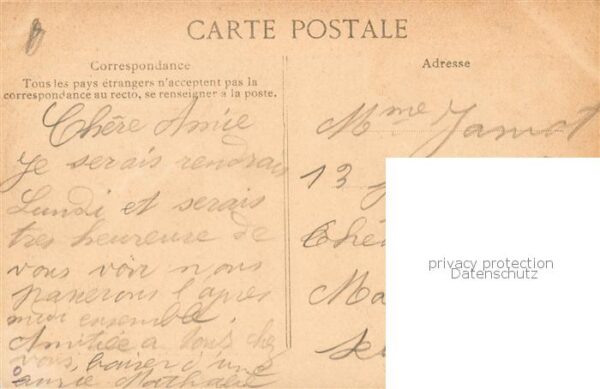 CARTE POSTALE
Correspondance
Tous les pays étrangers n'acceptent pas la
correspondance au recto, se renseigner à la poste.
Chère Amie
Je serais rendrai
Lundi et serais
tres heureuse de
vous voir nous
passerons l'apres
midi ensemble.
Amitiée a tous chez
vous, baiser d'une
amie
Adresse
Mme Jamot
13
Ma
privacy protection
Datenschutz